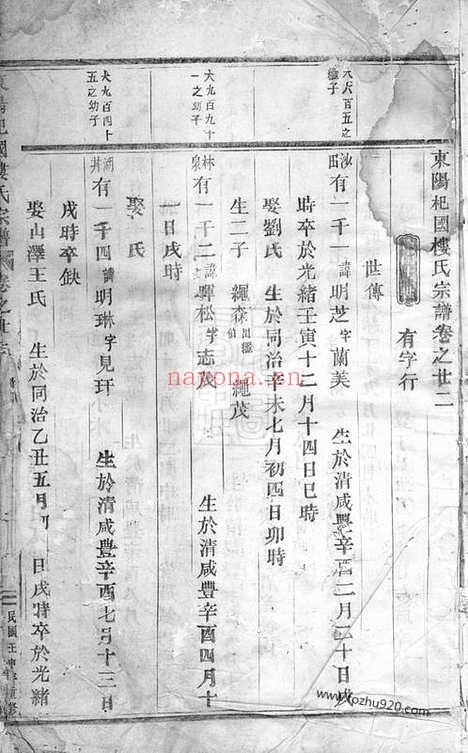 東陽杞國樓氏宗譜卷之廿二
有字行
世傳
大六百五之
繼子
沙田 有一千一 諱明芝 字蘭美 生於清咸豐辛酉二月二十日戌
時卒於光緒壬寅十二月十四日巳時
娶劉氏 生於同治辛未七月初四日卯時
生二子 繩森 繩茂
大九百九十
一之幼子
林泉 有一千二 諱暉松 字志茂 生於清咸豐辛酉四月十
一日戌時
娶 氏
大九百四十
五之幼子
湖井 有一千四 諱明琳 字見玕 生於清咸豐辛酉七月十三日
戌時卒缺
娶山澤王氏 生於同治乙丑五月 日戌時卒於光緒
杞國樓氏宗譜 卷之廿二
民國壬
nayona.cn
www.kozhu920.com